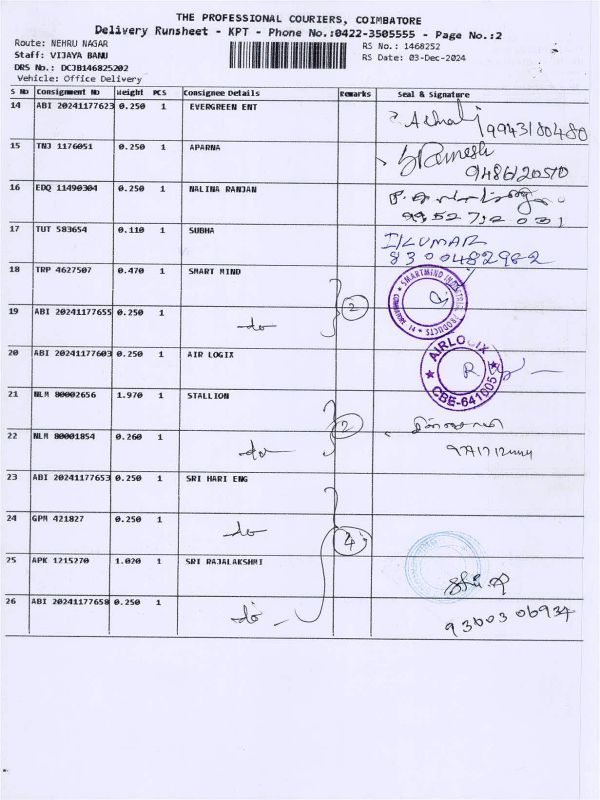 THE PROFESSIONAL COURIERS, COIMBATORE
Delivery Runsheet - KPT - Phone No.:0422-3505555 - Page No.:2
Route: NEHRU NAGAR
RS No.: 1468252
Staff: VIJAYA BANU
RS Date: 03-Dec-2024
DRS No.: DCJB146825202
Vehicle: Office Delivery
S No Consignment No Weight PCS Consignee Details Remarks Seal & Signature
14 ABI 20241177623 0.250 1 EVERGREEN ENT
9943180480
15 TNJ 1176051 0.250 1 APARNA
S Ramesh
9486120510
16 EDQ 11490304 0.250 1 NALINA RANJAN
9952732031
17 TUT 583654 0.110 1 SUBHA
8300482982
18 TRP 4627507 0.470 1 SMART MIND
SMARTMIND INDUSTRIAL PRODUCTS
2
19 ABI 20241177655 0.250 1 do
20 ABI 20241177603 0.250 1 AIR LOGIX
AIRLOGIX
CBE-641005
21 NLM 80002656 1.970 1 STALLION
2
22 NLM 80001854 0.260 1 do
23 ABI 20241177653 0.250 1 SRI HARI ENG
24 GPM 421827 0.250 1 do
4
25 APK 1215270 1.020 1 SRI RAJALAKSHMI
26 ABI 20241177658 0.250 1 do
9360306934